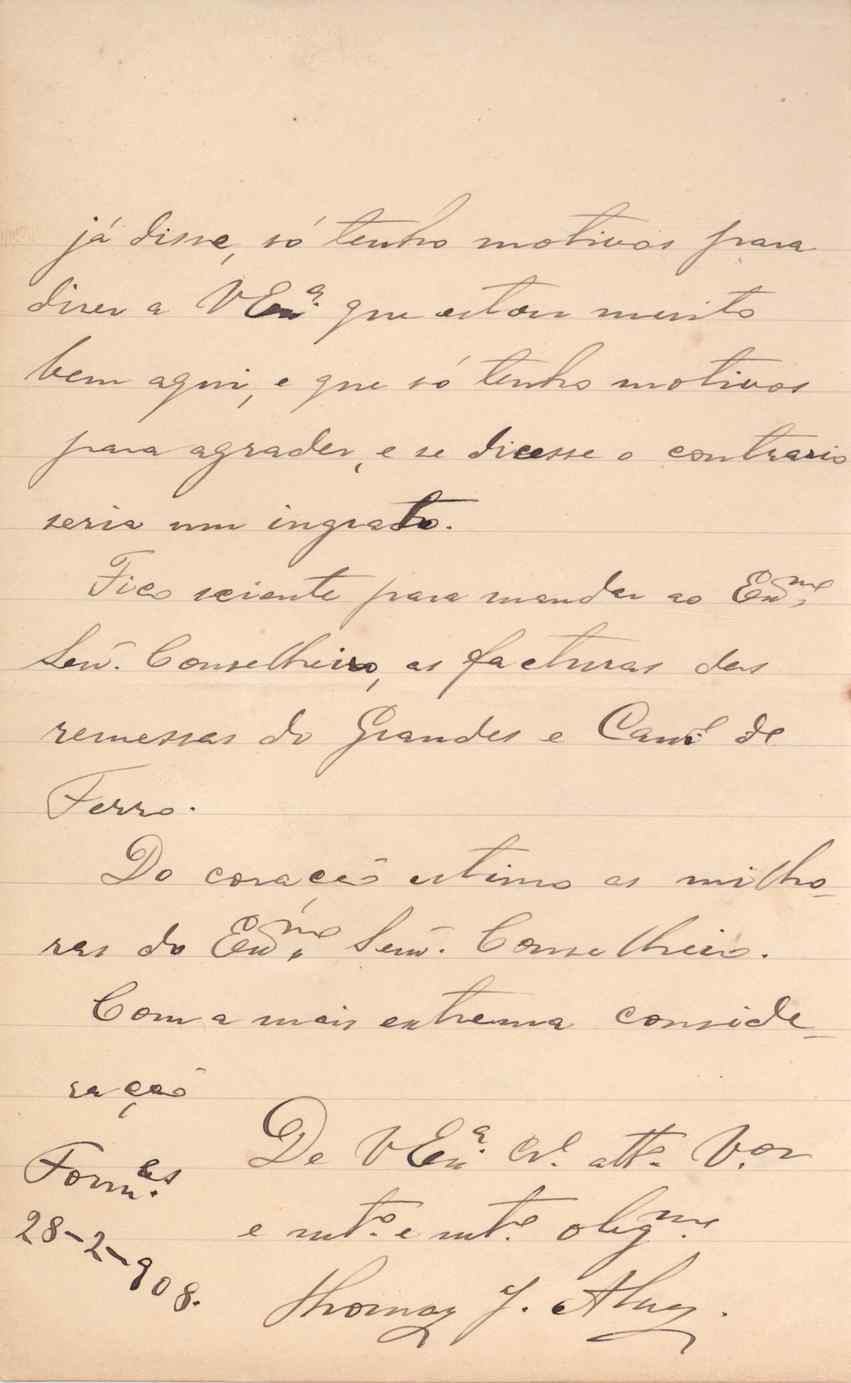 já disse, só tenho motivos para
diser a VExª. que estou muito
bem aqui, e que só tenho motivos
para agrader, e se dicesse o contrario
seria um ingrato.
Fico sciente para mandar ao Exmº.
Senr. Conselheiro, as facturas das
remessas do Grandes e Camº de
Ferro.
Do coração estimo as milho-
ras do Exmº. Senr. Conselheiro.
Com a mais extrema conside-
ração
De VExª. Crº. attº. V.or
e mtº. e mtº. obigmº.
28-2-908.
Thomaz J. Alvez.